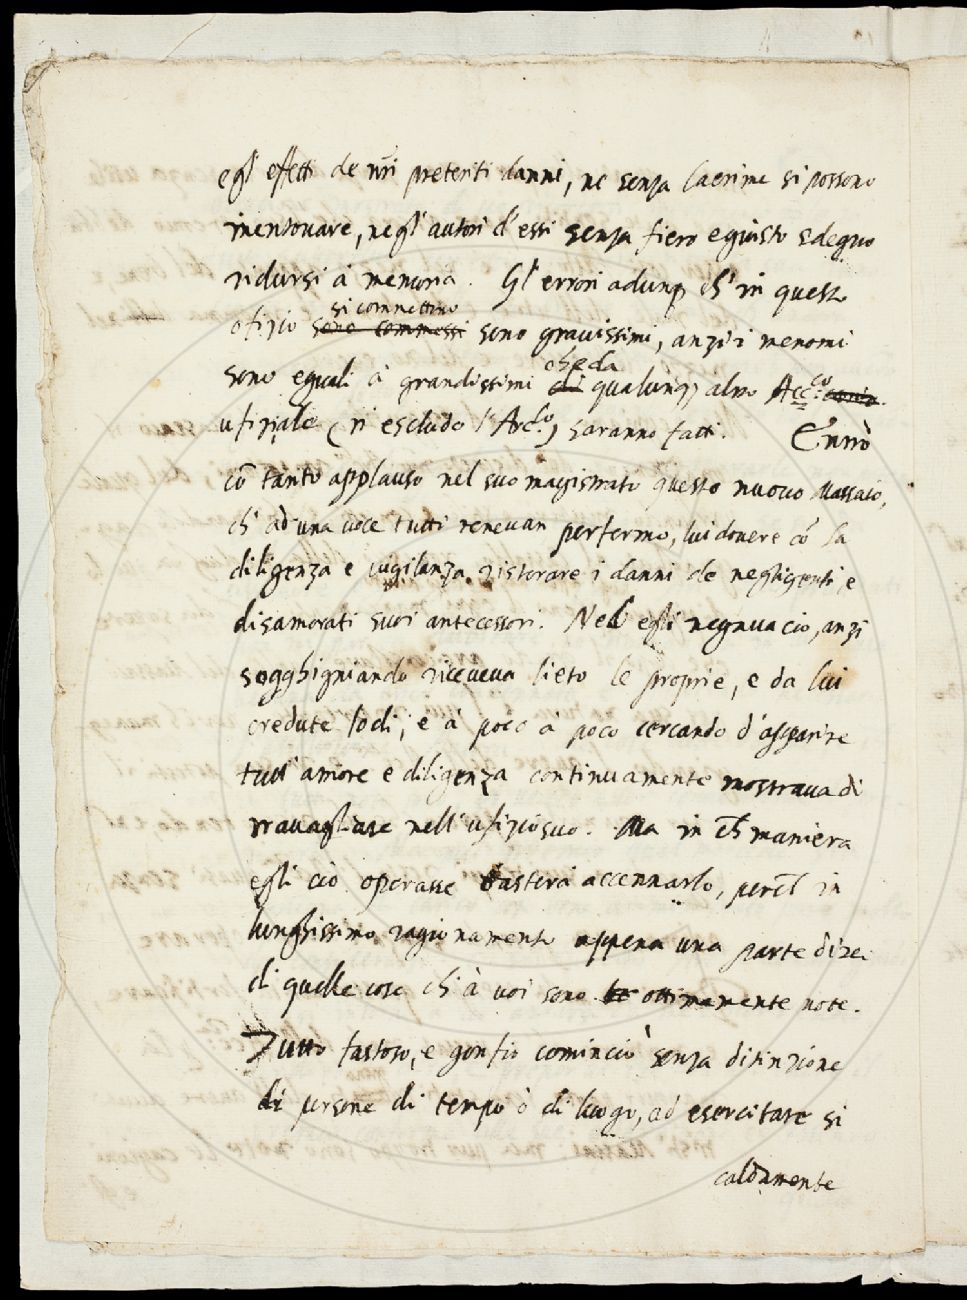 egl' effetti de nr̃i preteriti danni, ne senza lacrime si possono
mentovare, negl' autori d' essi senza fiero e giusto sdegno
ridursi à memoria. Gl' errori adunq, ch' in questo
si commettino
ofizio sono commessi sono gravissimi, anzi i menomi
che da
sono eguali à grandissimi di qualunq, altro Acc.co
ufiziale (n' escludo l' Arc.lo) saranno fatti. Entrò
cō tanto applauso nel suo magistrato questo nuovo Massaio,
ch' ad una voce tutti tenevan per fermo, lui dovere cō la
diligenza e vigilanza ristorare i danni de negligenti e
disamorati suoi antecessori. Ne ciò egli negava, anzi
sogghigniando riceveva lieto le proprie, e da lui
credute lodi, e à poco à poco cercando d' apparire
tutt' amore e diligenza continuamente mostrava di
travagliare nell' ufizio suo. Ma in ch̃ maniera
egli ciò operasse basterà accennarlo, perch̃ in
lunghissimo ragionamento appena una parte direi
di quelle cose ch' à voi sono ottimamente note.
Tutto fastoso, e gonfio cominciò senza distinzione
di persone di tempo ò di luogo, ad esercitare si
caldamente